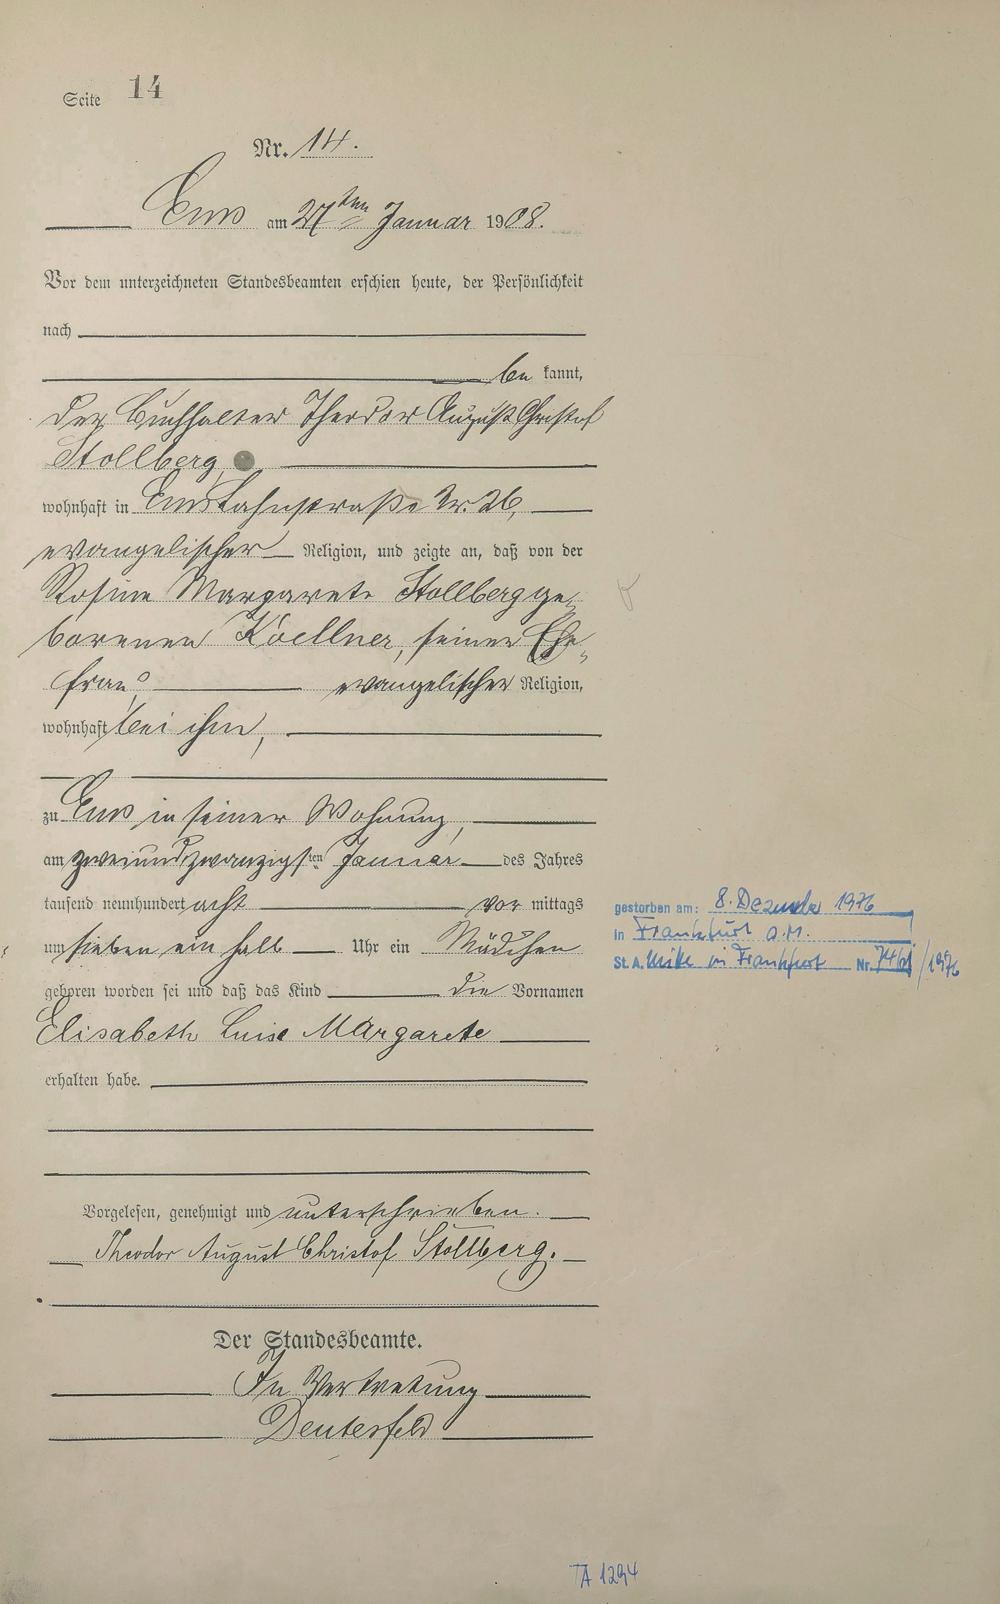 Seite 14
Nr. 14.
Ems am 27ten Januar 1908.
Vor dem unterzeichneten Standesbeamten erschien heute, der Persönlichkeit
nach
be kannt,
der Buchhalter Theodor August Christof
Stollberg,
wohnhaft in Ems Lahnstraße Nr. 26,
evangelischer Religion, und zeigte an, daß von der
Rosine Margarete Stollberg ge-
borenen Koellner, seiner Ehe-
frau, evangelischer Religion,
wohnhaft bei ihm,
zu Ems in seiner Wohnung,
am zweiundzwanzigsten Januar des Jahres
tausend neunhundert acht vor mittags
um sieben ein halb Uhr ein Mädchen
geboren worden sei und daß das Kind die Vornamen
Elisabeth Luise Margarete
erhalten habe.
Vorgelesen, genehmigt und unterschrieben.
Theodor August Christof Stollberg.
Der Standesbeamte.
In Vertretung
Deutesfeld
gestorben am: 8. Dezember 1976
in Frankfurt a.M.
St. A. Mitte in Frankfurt Nr. /1976
TA 1294